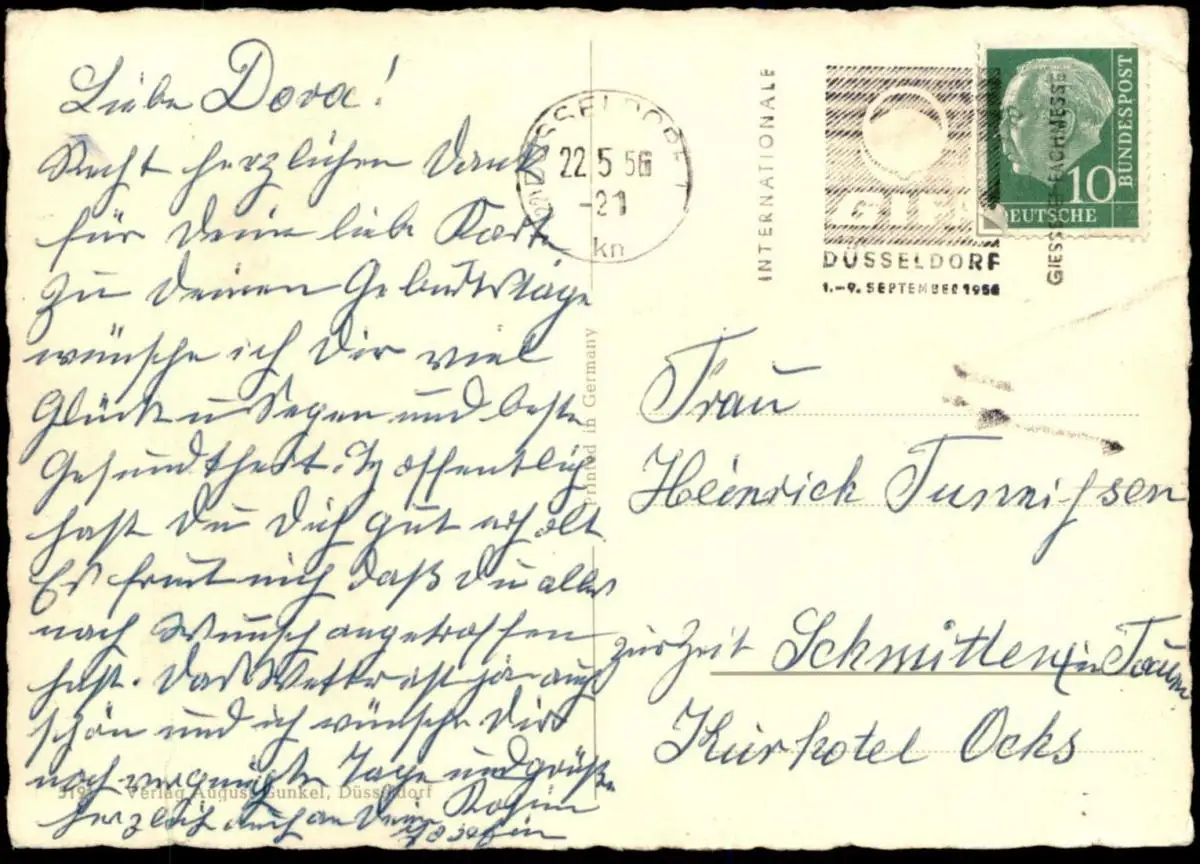 Liebe Dora!
Recht herzlichen Dank
für Deine liebe Karte
Zu Deinem Geburtstage
wünsche ich Dir viel
Glück u Segen und beste
Gesundheit. Hoffentlich
hast Du Dich gut erholt
Es freut mich daß Du alles
nach Wunsch angetroffen
hast. Das Wetter ist ja auch
schön und ich wünsche Dir
noch vergnügte Tage und grüße
herzlich auch an Deine
Josefin
5191 Verlag August Gunkel, Düsseldorf
Printed in Germany
DÜSSELDORF
22.5.56
-21
kn
INTERNATIONALE
GIFA
DÜSSELDORF
1.-9. SEPTEMBER 1956
GIESSEREIFACHMESSE
10
DEUTSCHE
BUNDESPOST
Frau
Heinrich Tunnißen
zur Zeit Schmitten in Taunus
Kurhotel Ochs